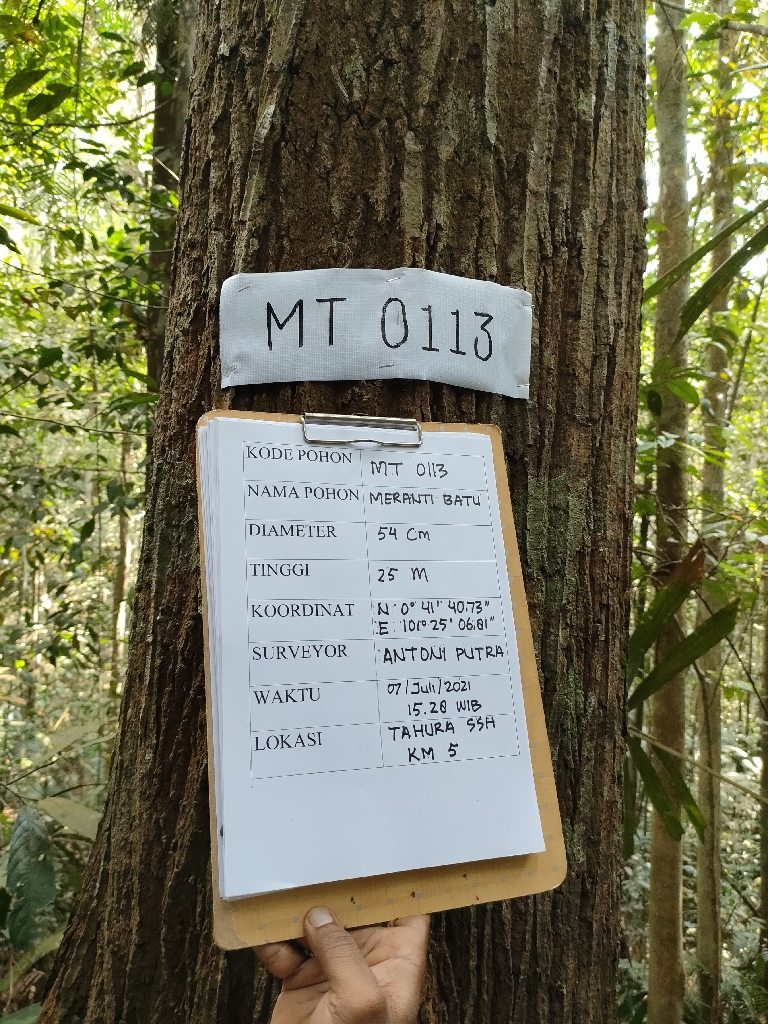 MT 0113
KODE POHON MT 0113
NAMA POHON MERANTI BATU
DIAMETER 54 Cm
TINGGI 25 M
KOORDINAT N : 0° 41" 40.73"
E : 101° 25' 06.81"
SURVEYOR ANTONY PUTRA
WAKTU 07/Juli/2021
15.28 WIB
LOKASI TAHURA SSH
KM 5